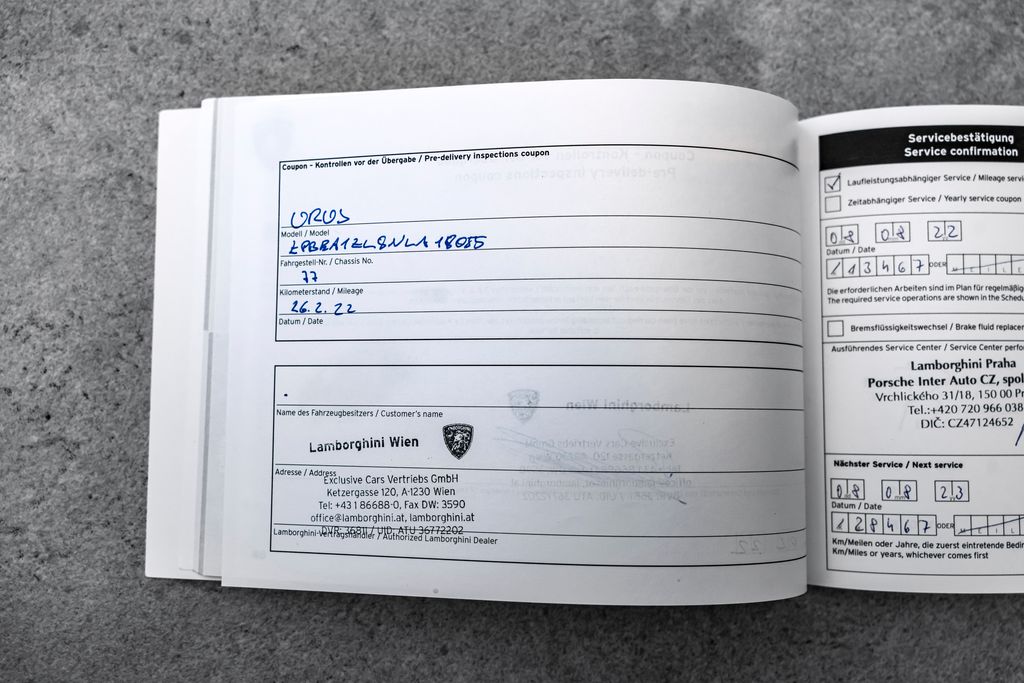 Coupon - Kontrollen vor der Übergabe / Pre-delivery inspections coupon
URUS
Modell / Model
Fahrgestell-Nr. / Chassis No.
77
Kilometerstand / Mileage
26.2.22
Datum / Date
Name des Fahrzeugbesitzers / Customer's name
Lamborghini Wien
Adresse / Address
Exclusive Cars Vertriebs GmbH
Ketzergasse 120, A-1230 Wien
Tel: +43 1 86688-0, Fax DW: 3590
office@lamborghini.at, lamborghini.at
DVR: 36811 / UID: ATU 36772202
Lamborghini-Vertragshändler / Authorized Lamborghini Dealer
Servicebestätigung
Service confirmation
Laufleistungsabhängiger Service / Mileage
Zeitabhängiger Service / Yearly service coupon
08 08 22
Datum / Date
113467 ODER
Die erforderlichen Arbeiten sind im Plan für
The required service operations are shown in the
Bremsflüssigkeitswechsel / Brake fluid
Ausführendes Service Center / Service Center
Lamborghini Praha
Porsche Inter Auto CZ,
Vrchlického 31/18, 150 00
Tel.:+420 720 966 038
DIČ: CZ47124652
Nächster Service / Next service
08 08 23
128467 ODER
Km/Meilen oder Jahre, die zuerst eintretende
Km/Miles or years, whichever comes first